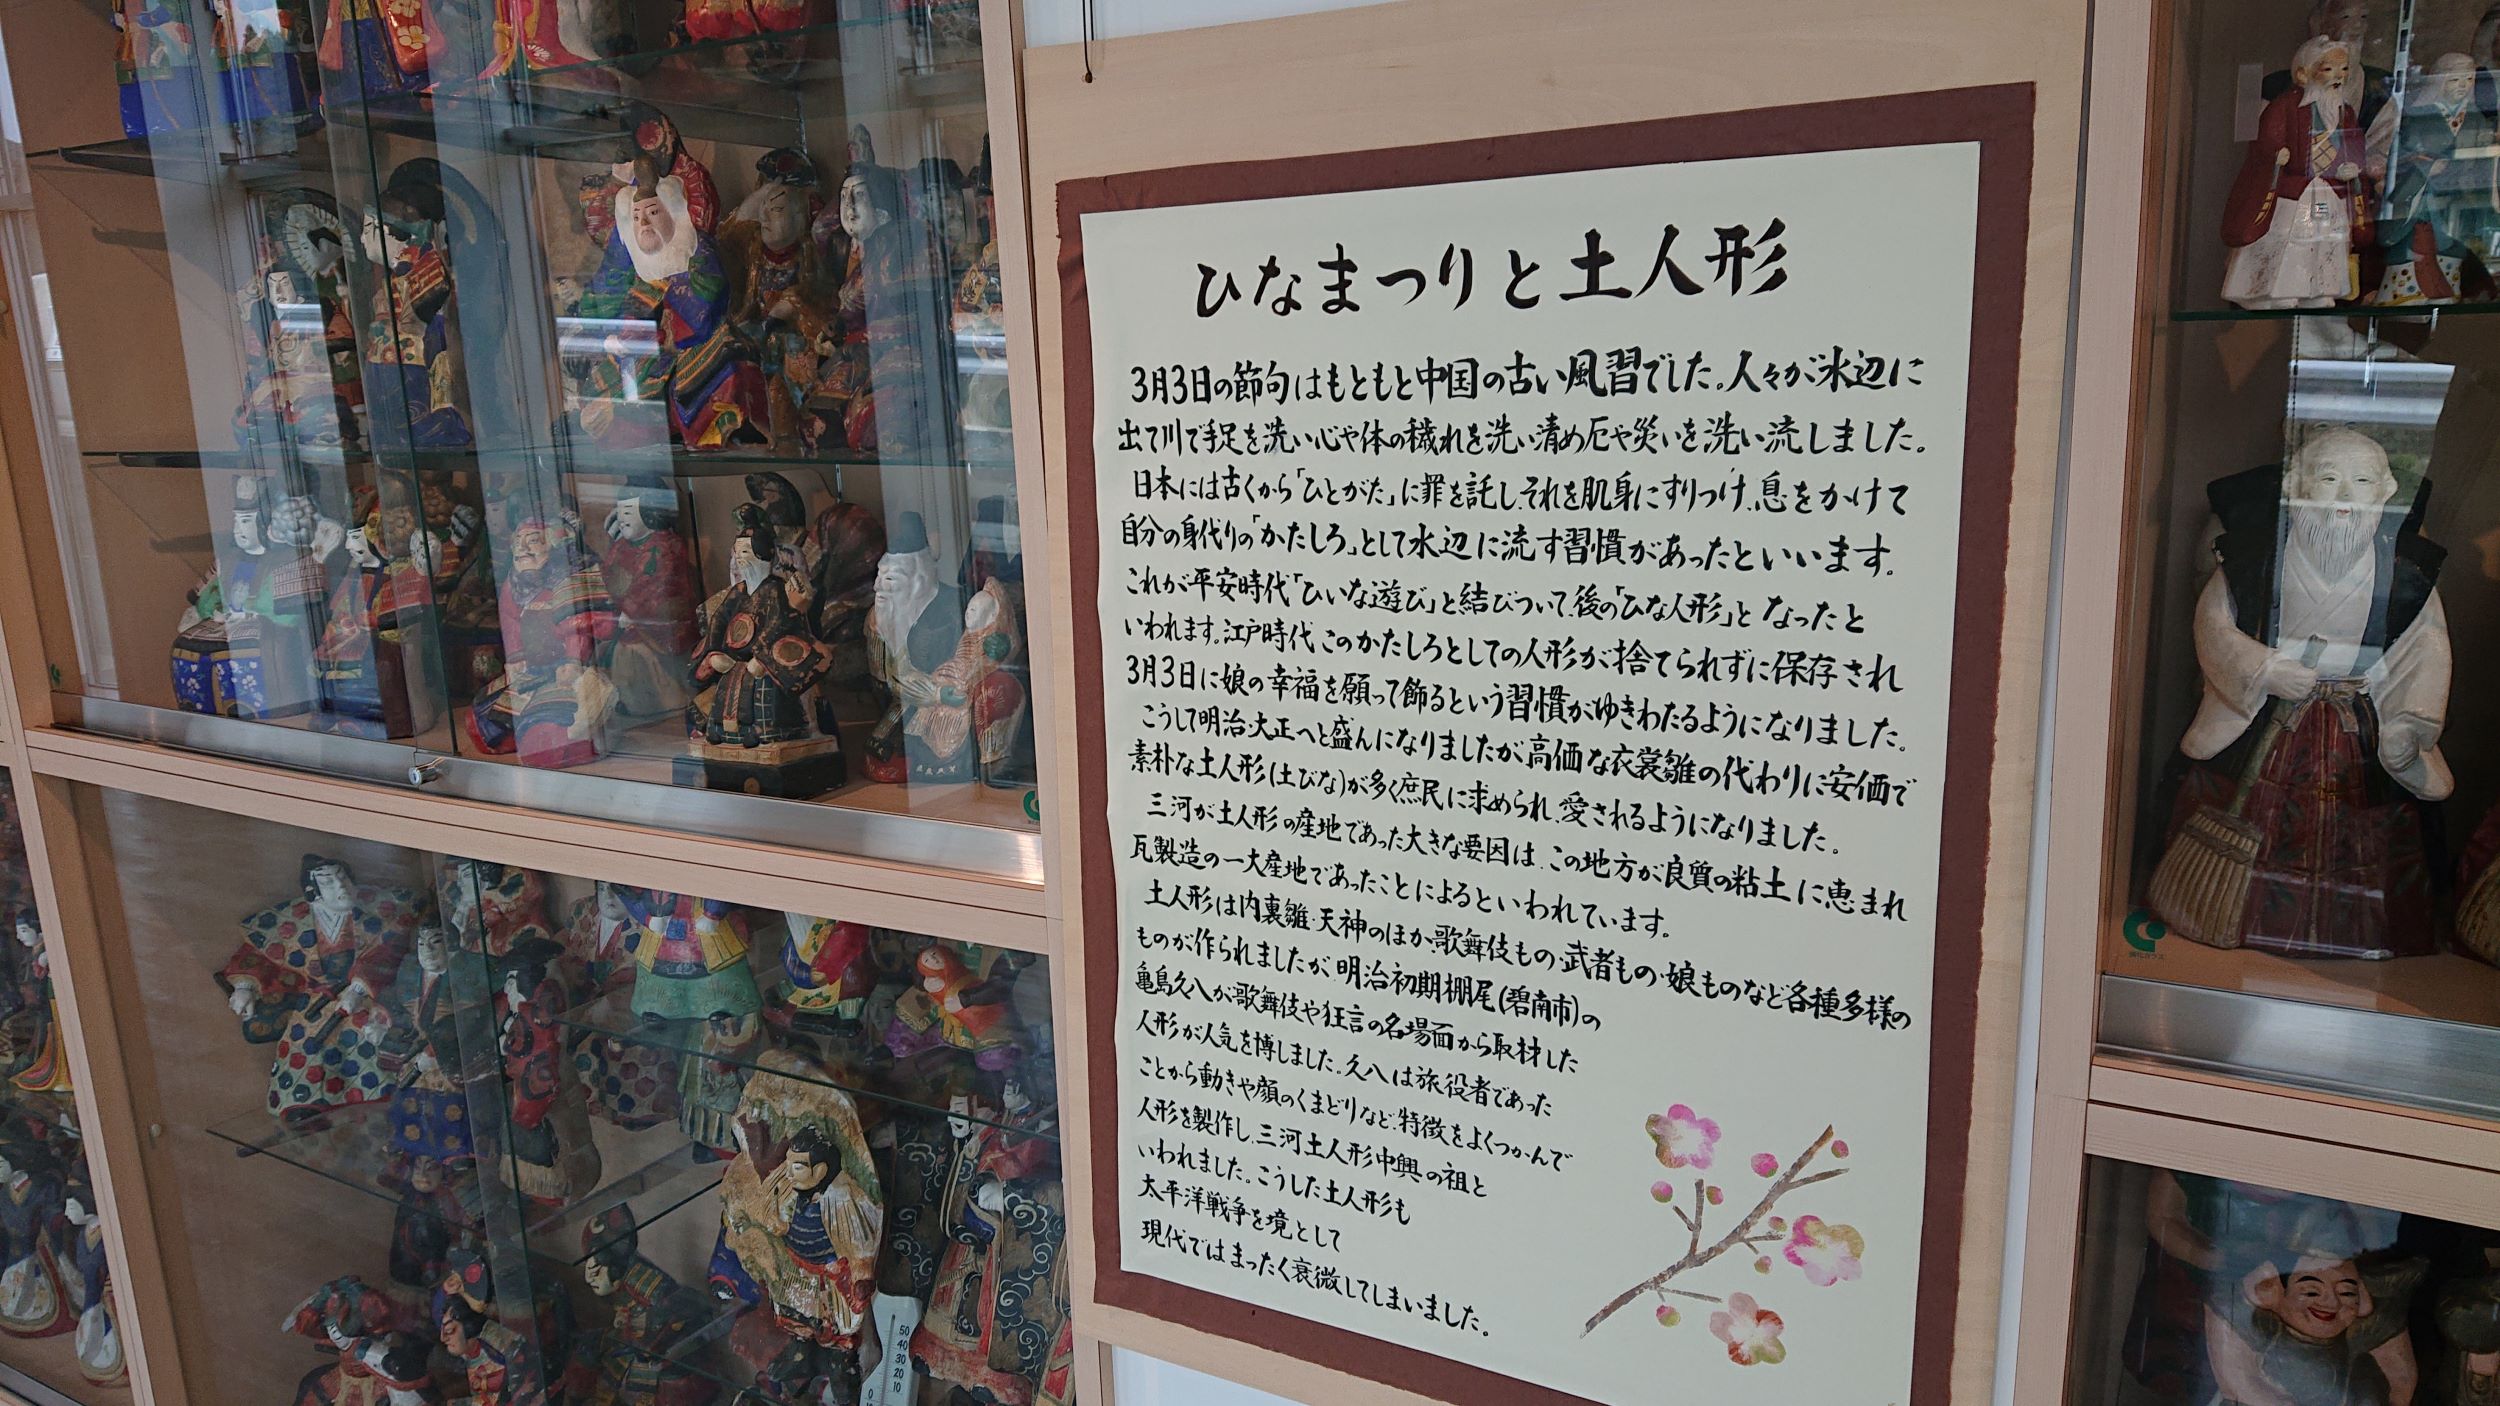 ひなまつりと土人形
3月3日の節句はもともと中国の古い風習でした。人々が水辺に
出て川で手足を洗い心や体の穢れを洗い清め厄や災いを洗い流しました。
日本には古くから「ひとがた」に罪を託し、それを肌身にすりつけ、息をかけて
自分の身代りの「かたしろ」として水辺に流す習慣があったといいます。
これが平安時代「ひいな遊び」と結びついて、後の「ひな人形」となったと
いわれます。江戸時代、このかたしろとしての人形が捨てられずに保存され
3月3日に娘の幸福を願って飾るという習慣がゆきわたるようになりました。
こうして明治・大正へと盛んになりましたが高価な衣裳雛の代わりに安価で
素朴な土人形(土びな)が多く庶民に求められ、愛されるようになりました。
三河が土人形の産地であった大きな要因は、この地方が良質の粘土に恵まれ
瓦製造の一大産地であったことによるといわれています。
土人形は内裏雛・天神のほか、歌舞伎もの・武者もの・娘ものなど各種多様の
ものが作られましたが、明治初期棚尾(碧南市)の
亀島久八が歌舞伎や狂言の名場面から取材した
人形が人気を博しました。久八は旅役者であった
ことから動きや顔のくまどりなど、特徴をよくつかんで
人形を製作し、三河土人形中興の祖と
いわれました。こうした土人形も
太平洋戦争を境として
現代ではまったく衰微してしまいました。
50
40
30
20
10
0